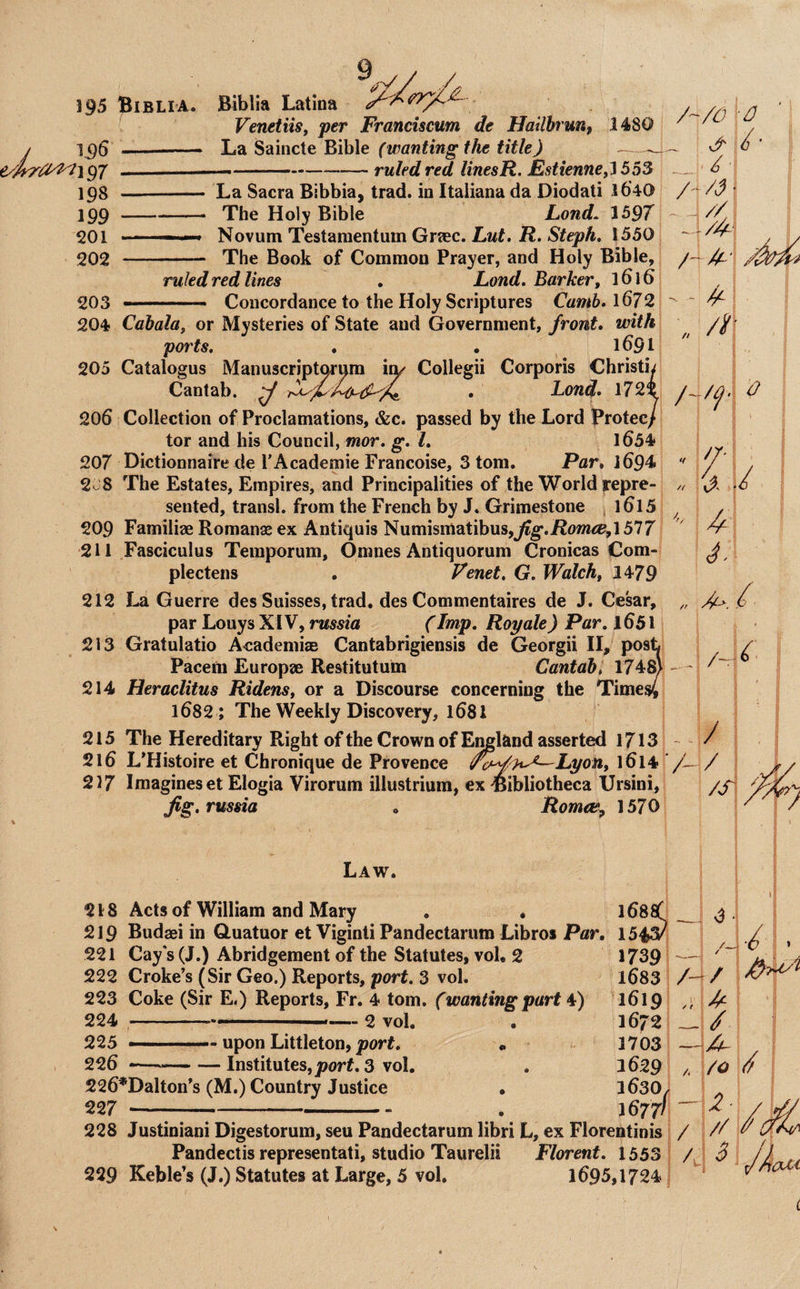 9
195 BIBLIA. Biblia Latina
Venetiis, per Franciscum de Hailbrun, 1480 1-10 0
196 ——— La Saincte Bible (wanting the title) 6
197 ——— ruled red lines R. Estienne, 1553 6
198 ——— La Sacra Bibbia, trad. in Italiana da Diodati 1640 1-13
199 ——— The Holy Bible Lond. 1597 11
201 ——— Novum Testamentum Græc. Lut. R. Steph. 1550 14
202 ——— The Book of Common Prayer, and Holy Bible, 1-4
ruled red lines . Lond. Barker, 1616
203 ——— Concordance to the Holy Scriptures Camb. 1672 4
204 Cabala, or Mysteries of State and Government, front. with
ports. . . 1691
205 Catalogus Manuscriptorum in Collegii Corporis Christi,
Cantab. . Lond. 172 1-19 0
206 Collection of Proclamations, &c. passed by the Lord Protec
tor and his Council, mor. g. l. 1654
207 Dictionnaire de l'Academie Francoise, 3 tom. Par. 1694
208 The Estates, Empires, and Principalities of the World repre-
sented, transl. from the French by J. Grimestone 1615
209 Familiæ Romanæ ex Antiquis Numismatibus, fig. Romæ, 1577 4
211 Fasciculus Temporum, Omnes Antiquorum Cronicas Com- 3
plectens . Venet. G. Walch, 1479
212 La Guerre des Suisses, trad. des Commentaires de J. Cesar,
par Louys XIV, russia (Imp. Royale) Par. 1651
213 Gratulatio Academiæ Cantabrigiensis de Georgii II, post
Pacem Europæ Restitutum Cantab. 1748 1-6
214 Heraclitus Ridens, or a Discourse concerning the Times,
1682; The Weekly Discovery, 1681
215 The Hereditary Right of the Crown of England asserted 1713 1
216 L'Histoire et Chronique de Provence Lyon, 1614 1-1
217 Imagines et Elogia Virorum illustrium, ex Bibliotheca Ursini, 15
fig. russia . Romæ, 1570
LAW.
218 Acts of William and Mary . . 168 3
219 Budæi in Quatuor et Viginti Pandectarum Libros Par. 154
221 Cay's (J.) Abridgement of the Statutes, vol. 2 1739
222 Croke's (Sir Geo.) Reports, port. 3 vol. 1683 1-1
223 Coke (Sir E.) Reports, Fr. 4 tom. (wanting part 4) 1619 4
224 ——— 2 vol. . 1672
225 ——— upon Littleton, port. . 1703 4
226 ——— — Institutes, port. 3 vol. . 1629 10
226*Dalton's (M.) Country Justice . 1630
227 ——— . 1677 2
228 Justiniani Digestorum, seu Pandectarum libri L, ex Florentinis 1 11
Pandectis representati, studio Taurelii Florent. 1553 1 3
229 Keble's (J.) Statutes at Large, 5 vol. 1695,1724